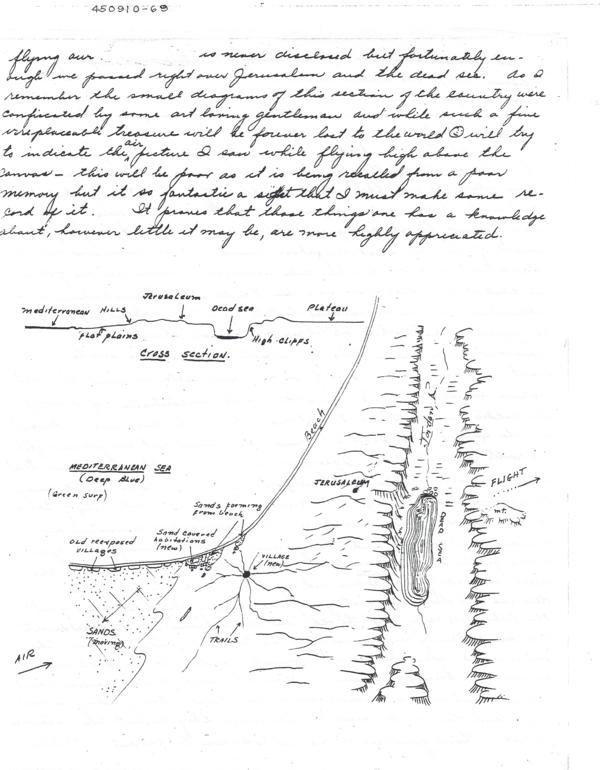 450910-69
flying our is never disclosed but fortunately en-
ough we passed right over Jerusalum and the dead sea. As I
remember the small diagrams of this section of the country were
confiscated by some art loving gentleman and while such a fine
irreplaceable treasure will be forever lost to the world I will try
to indicate the air picture I saw while flying high above the
canvas – this will be poor as it is being recalled from a poor
memory but it so fantastic a sight that I must make some re-
cord of it. It proves that those things one has a knowledge
about, however little it may be, are more highly appreciated.
Jerusaleum
mediterranean HILLS Dead sea Plateau
Flat plains High-Cliffs
Cross section.
Beach
MEDITERRANEAN SEA
(Deep Blue)
(Green surf)
JERUSALEUM
FLIGHT
mt.
Dead Sea
Sands forming
from beach
Sand covered
habitations
(new)
OLD reexposed
villages
VILLAGE
(new)
SANDS
(moving)
TRAILS
AIR